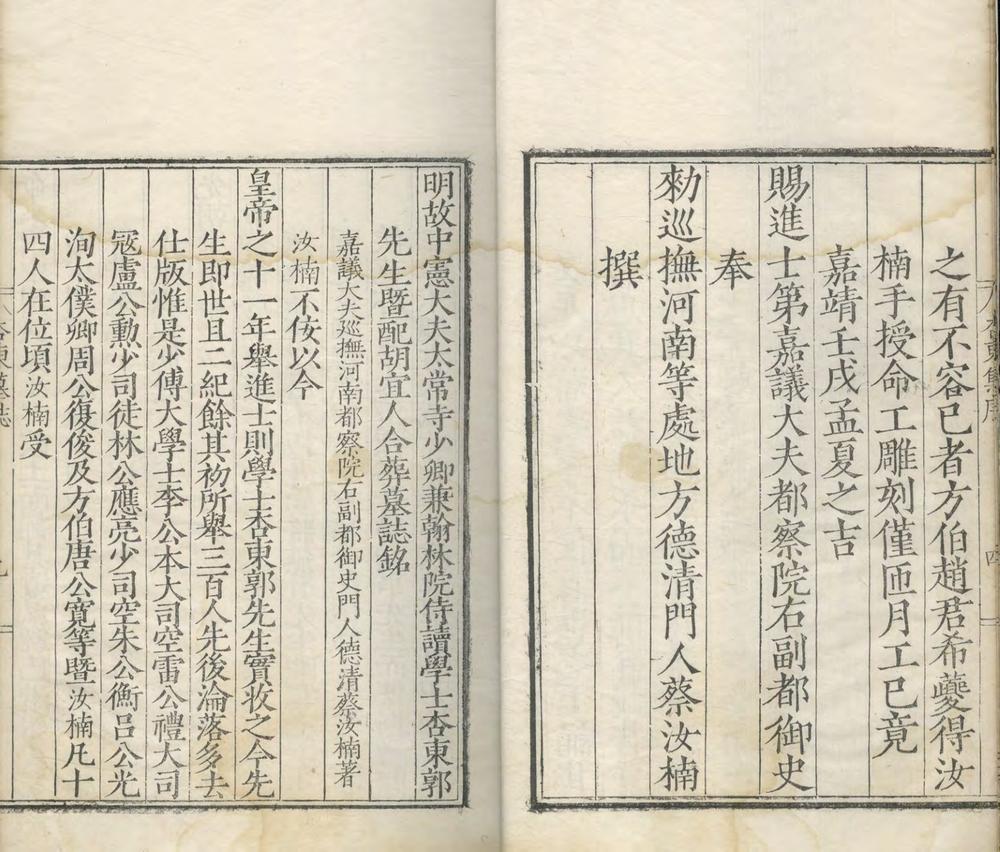 之有不容已者方伯趙君希夔得汝
楠手授命工雕刻僅匝月工已竟
嘉靖壬戌孟夏之吉
賜進士第嘉議大夫都察院右副都御史
奉
勑巡撫河南等處地方德清門人蔡汝楠
撰
明故中憲大夫太常寺少卿兼翰林院侍讀學士杏東郭
先生暨配胡宜人合葬墓誌銘
嘉議大夫巡撫河南都察院右副都御史門人德清蔡汝楠著
汝楠不侫以今
皇帝之十一年舉進士則學士杏東郭先生實收之今先
生即世且二紀餘其初所舉三百人先後淪落多去
仕版惟是少傅大學士李公本大司空雷公禮大司
冦盧公勳少司徒林公應亮少司空朱公衡吕公光
洵太僕卿周公復俊及方伯唐公寛等暨汝楠凡十
四人在位頃汝楠受
杏東墓誌